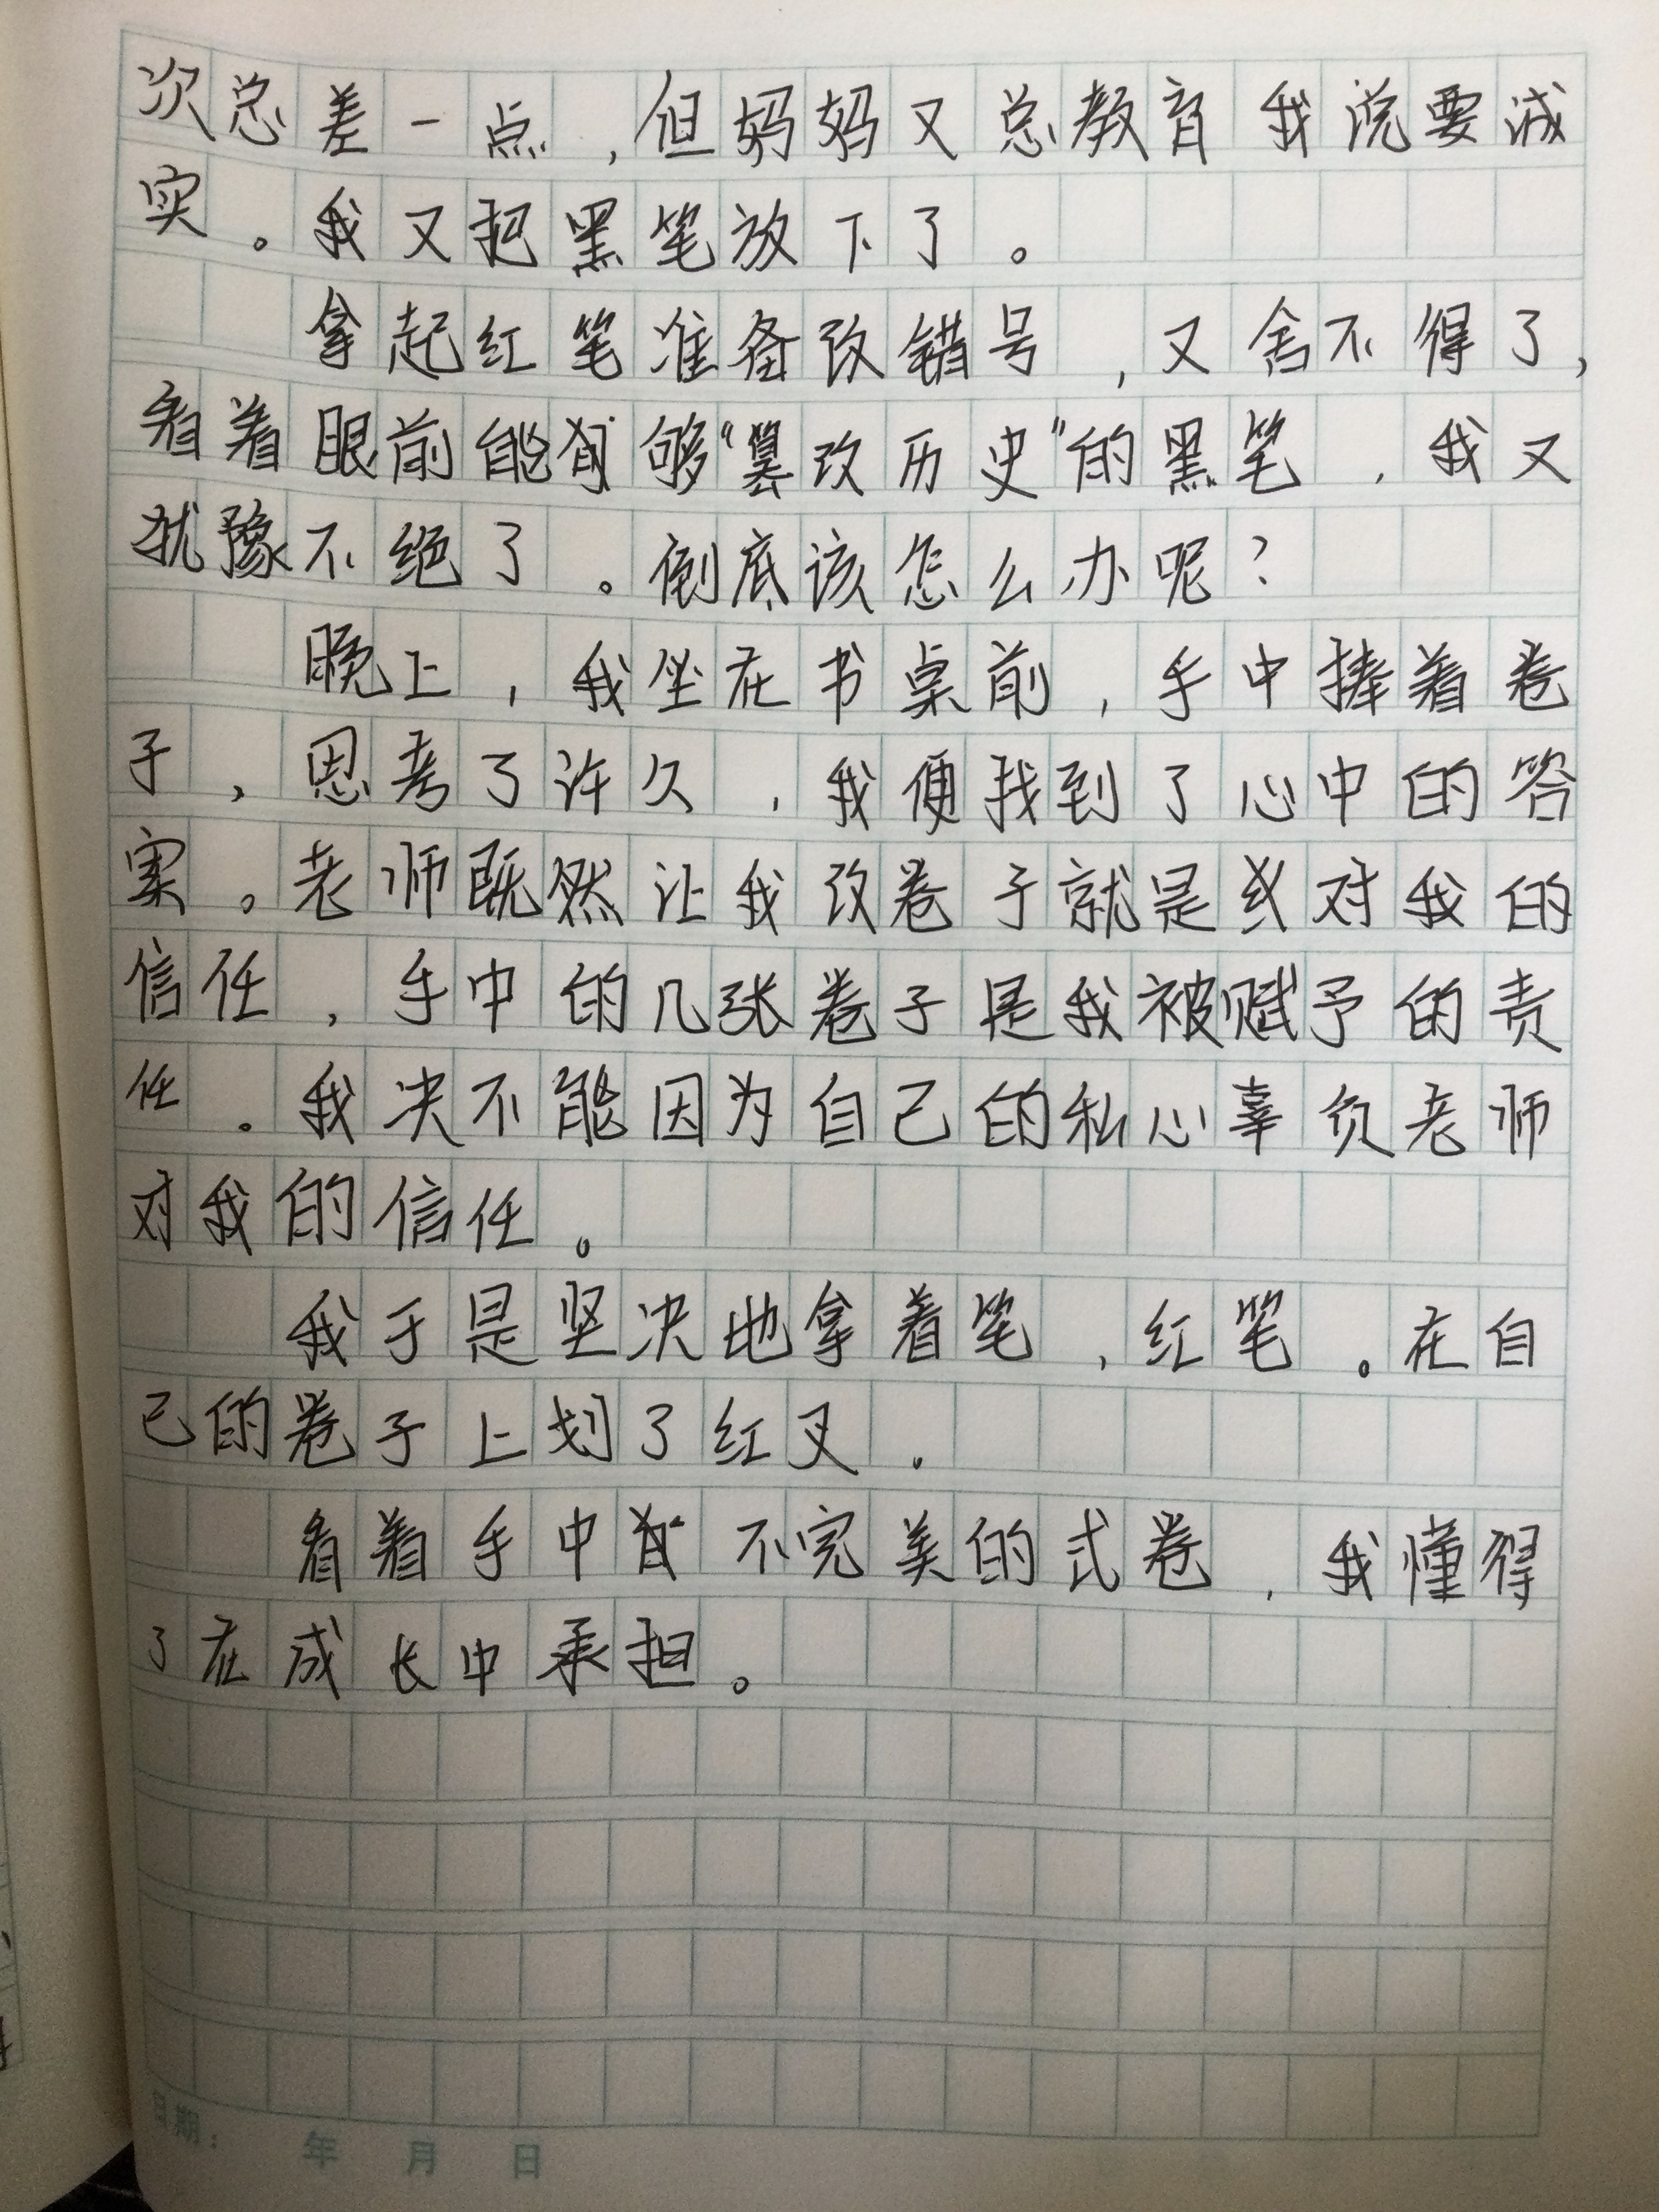 次总差一点，但妈妈又总教育我说要诚
实。我又把黑笔放下了。
拿起红笔准备改错号，又舍不得了，
看着眼前能够“篡改历史”的黑笔，我又
犹豫不绝了。倒底该怎么办呢？
晚上，我坐在书桌前，手中捧着卷
子，思考了许久，我便找到了心中的答
案。老师既然让我改卷子就是对我的
信任，手中的几张卷子是我被赋予的责
任。我决不能因为自己的私心辜负老师
对我的信任。
我于是坚决地拿着笔，红笔。在自
己的卷子上划了红叉。
看着手中不完美的式卷，我懂得
了在成长中承担。
日期： 年 月 日